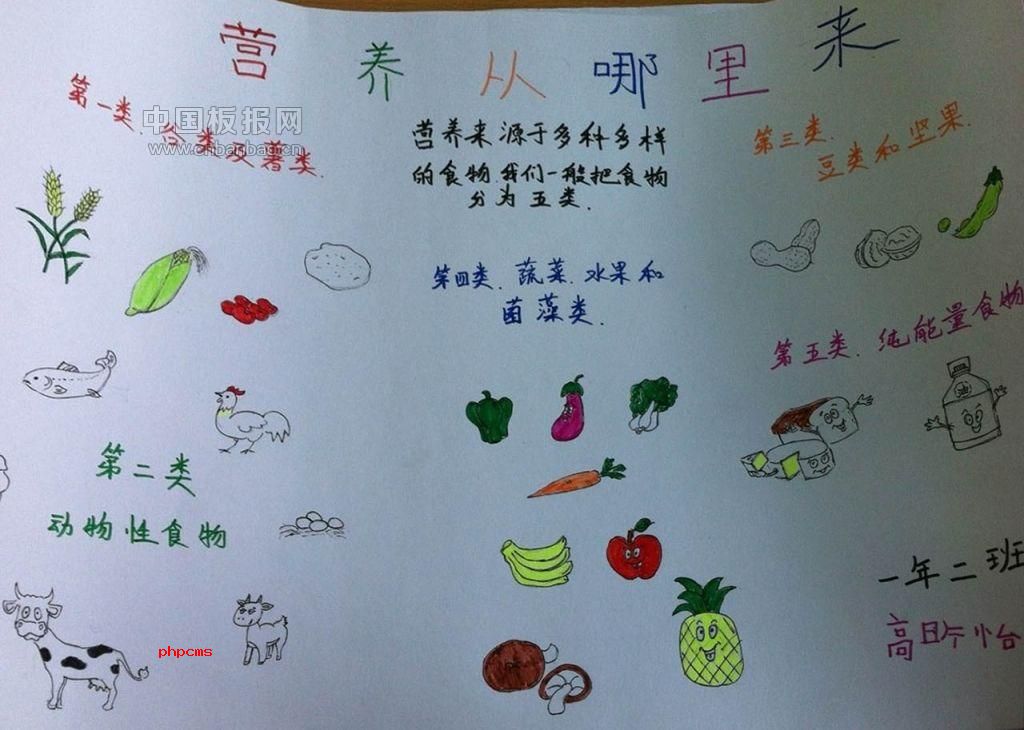 营养从哪里来
第一类 谷类及薯类.
中国板报网
www.cnbanbao.cn
营养来源于多种多样
的食物我们一般把食物
分为五类.
第三类.
豆类和坚果.
第四类.蔬菜.水果和
菌藻类.
第五类.纯能量食物
油
第二类
动物性食物
一年二班
phpcms